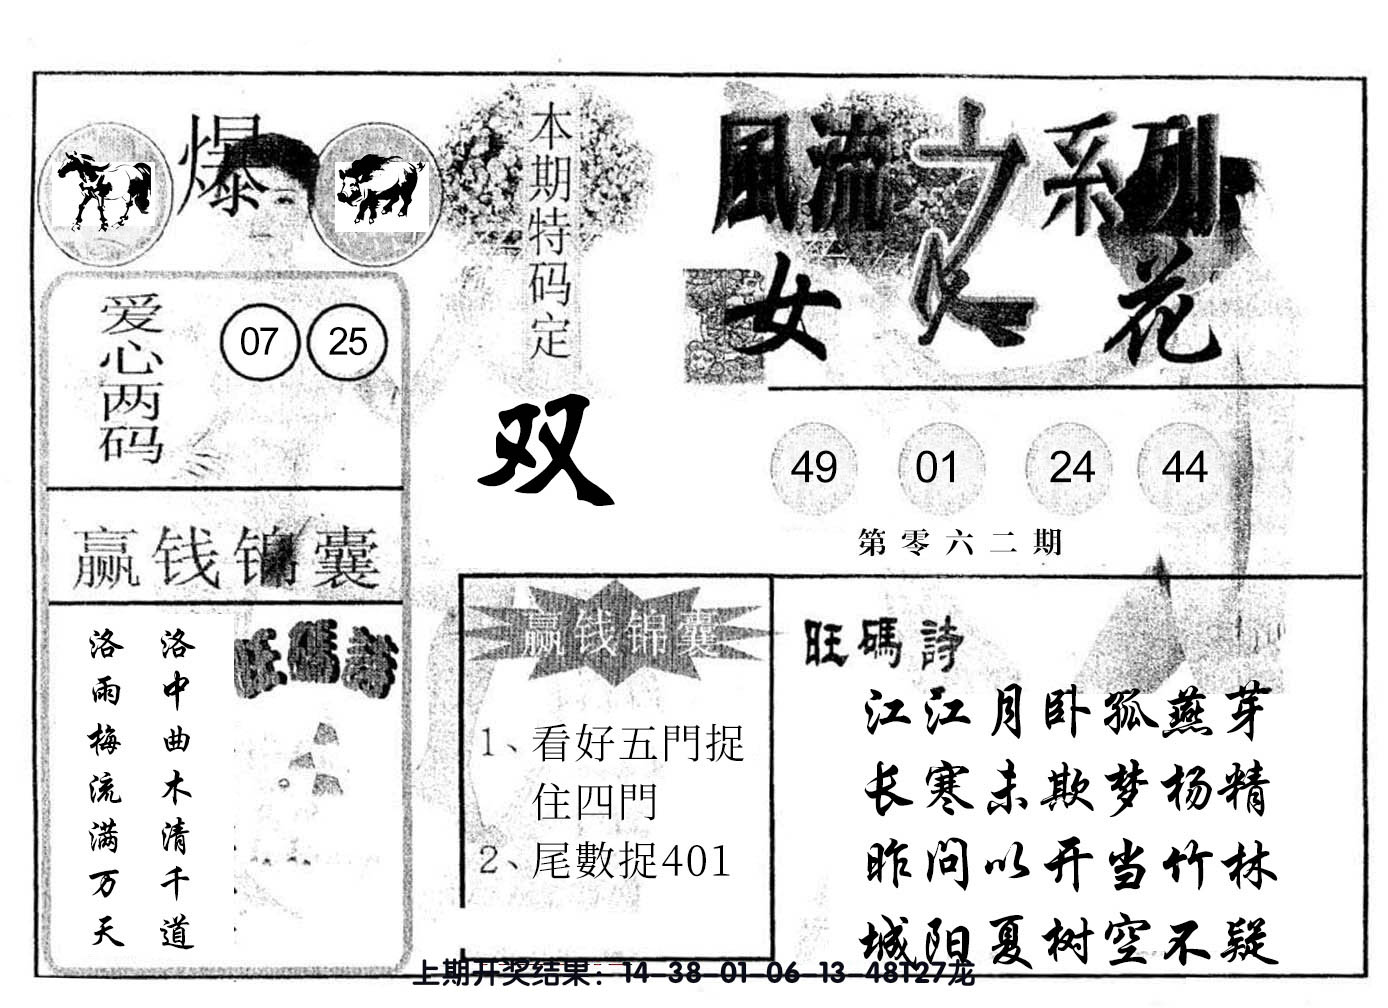 爆
本期特码定
双
風流之系列
女人花
爱心两码
07 25
49 01 24 44
第零六二期
赢钱锦囊
洛中曲木清千道
洛雨梅流满万天
旺碼詩
赢钱锦囊
1、看好五門捉
住四門
2、尾數捉401
旺碼詩
江江月卧孤燕芽
长寒未欺梦杨精
昨问以开当竹林
城阳夏树空不疑
上期开奖结果：14-38-01-06-13-48T27龙